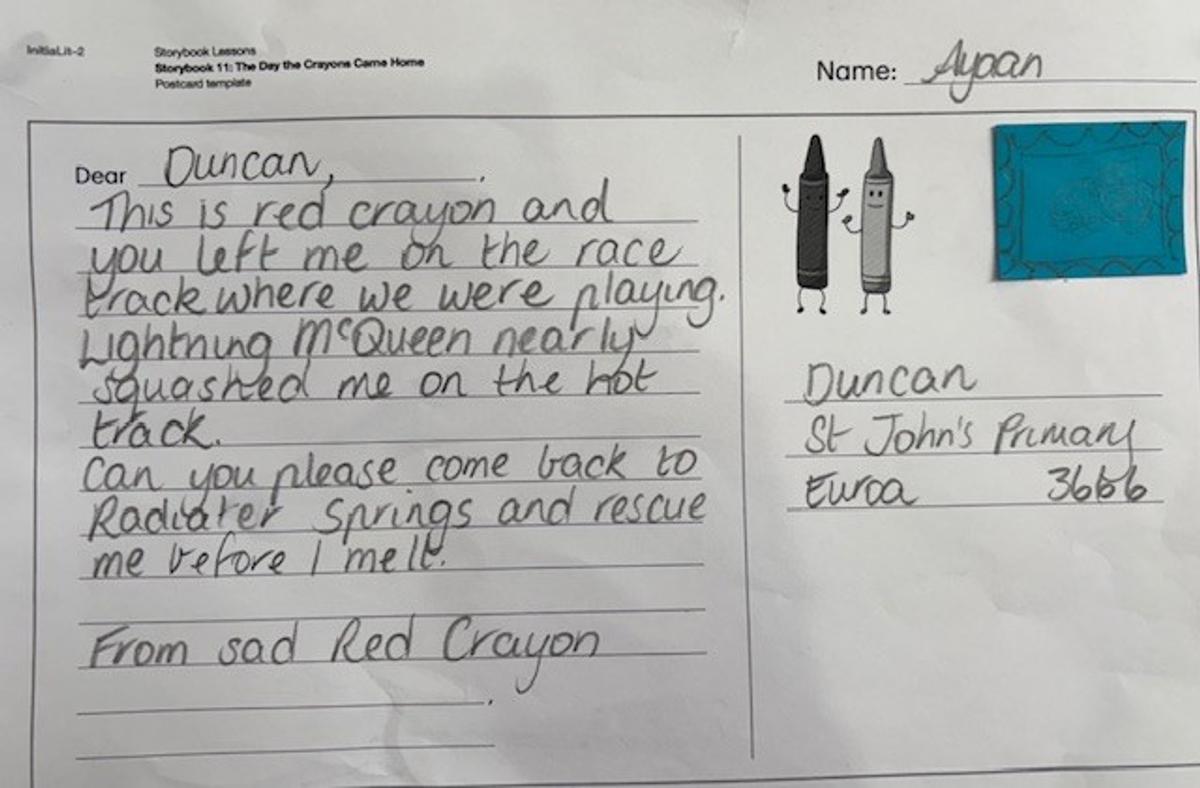 InitiaLit-2
Storybook Lessons
Storybook 11: The Day the Crayons Came Home
Postcard template
Name: Ayaan
Dear Duncan,
This is red crayon and
you left me on the race
track where we were playing.
Lightning McQueen nearly
squashed me on the hot
track.
Can you please come back to
Radiater Springs and rescue
me before I melt.
From sad Red Crayon
Duncan
St John's Primary
Euroa 3666